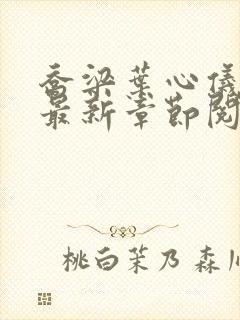 乔梁叶心仪
最新章节阅
桃白茉乃 森川